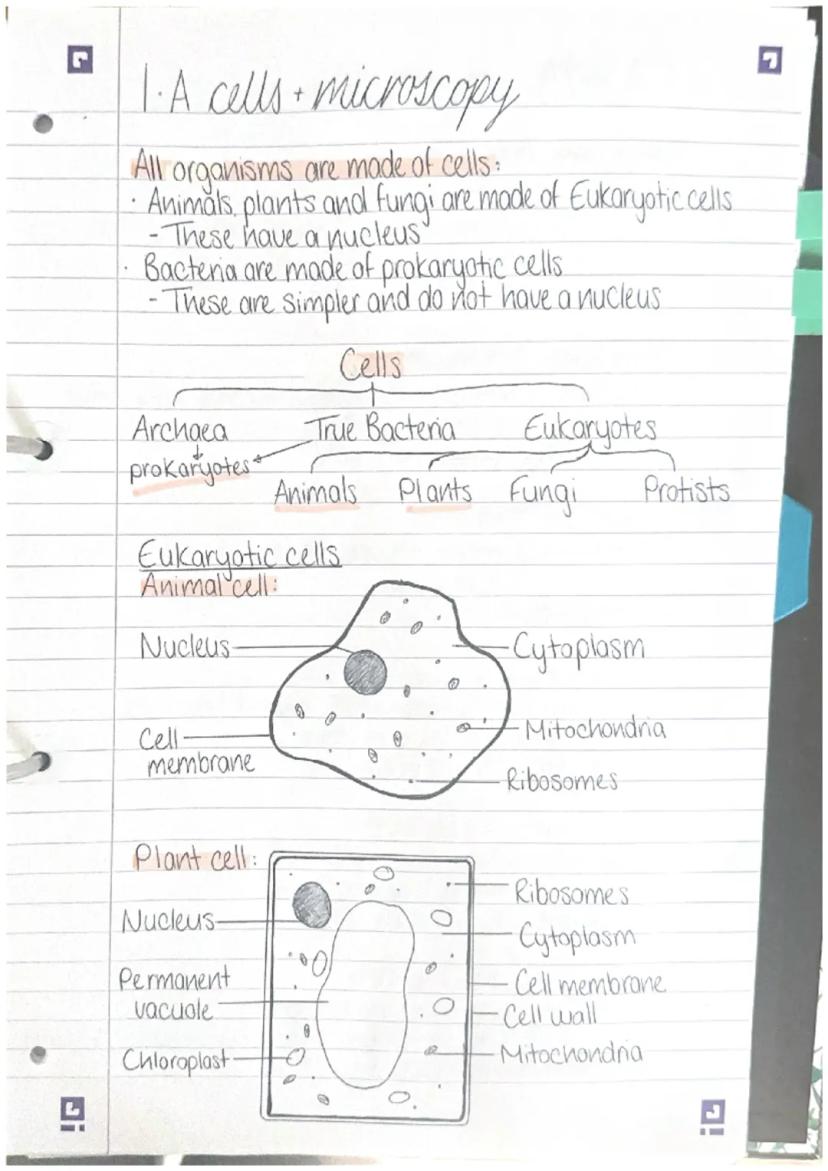 1.A cells + microscopy
All organisms are made of cells:
· Animals, plants and fungi are made of Eukaryotic cells
- These have a nucleus
· Bacteria are made of prokaryotic cells
- These are simpler and do not have a nucleus
Cells
Archaea True Bacteria Eukaryotes
prokaryotes
Animals Plants Fungi Protists
Eukaryotic cells
Animal cell:
Nucleus Cytoplasm
Cell Mitochondria
membrane
Ribosomes
Plant cell:
Ribosomes
Nucleus
Cytoplasm
Permanent Cell membrane
vacuole Cell wall
Chloroplast Mitochondria